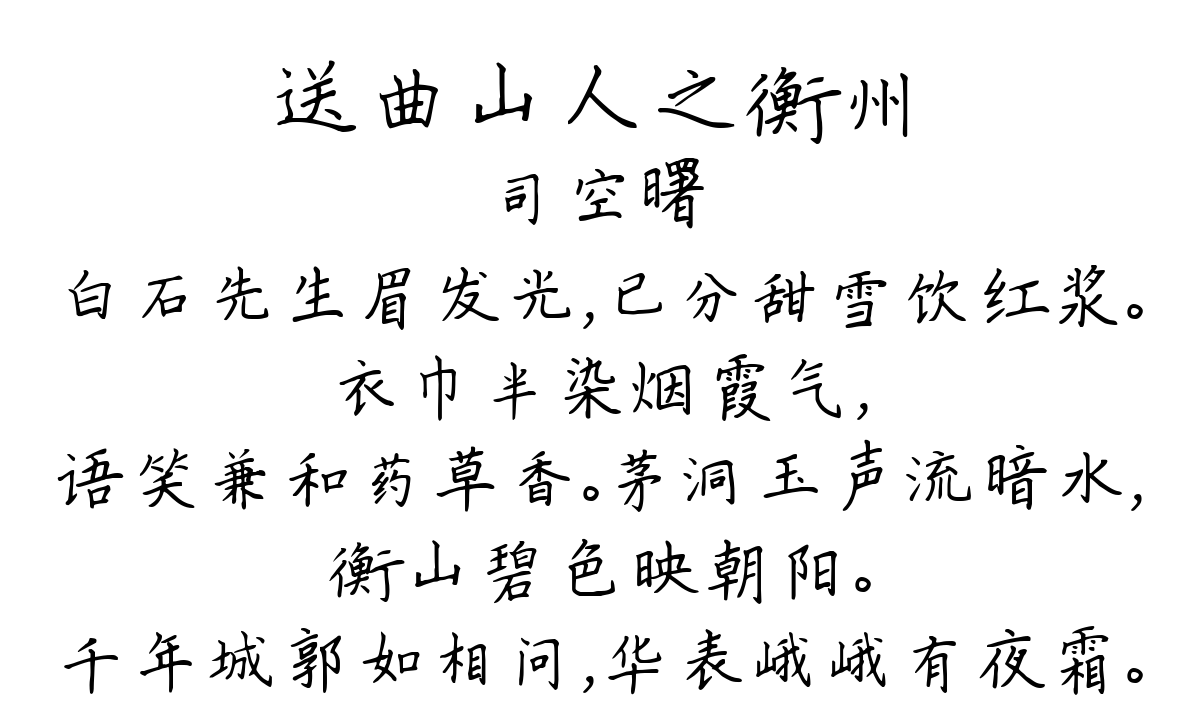 送曲山人之衡州
司空曙
白石先生眉发光,已分甜雪饮红浆。
衣巾半染烟霞气,
语笑兼和药草香。茅洞玉声流暗水,
衡山碧色映朝阳。
千年城郭如相问,华表峨峨有夜霜。